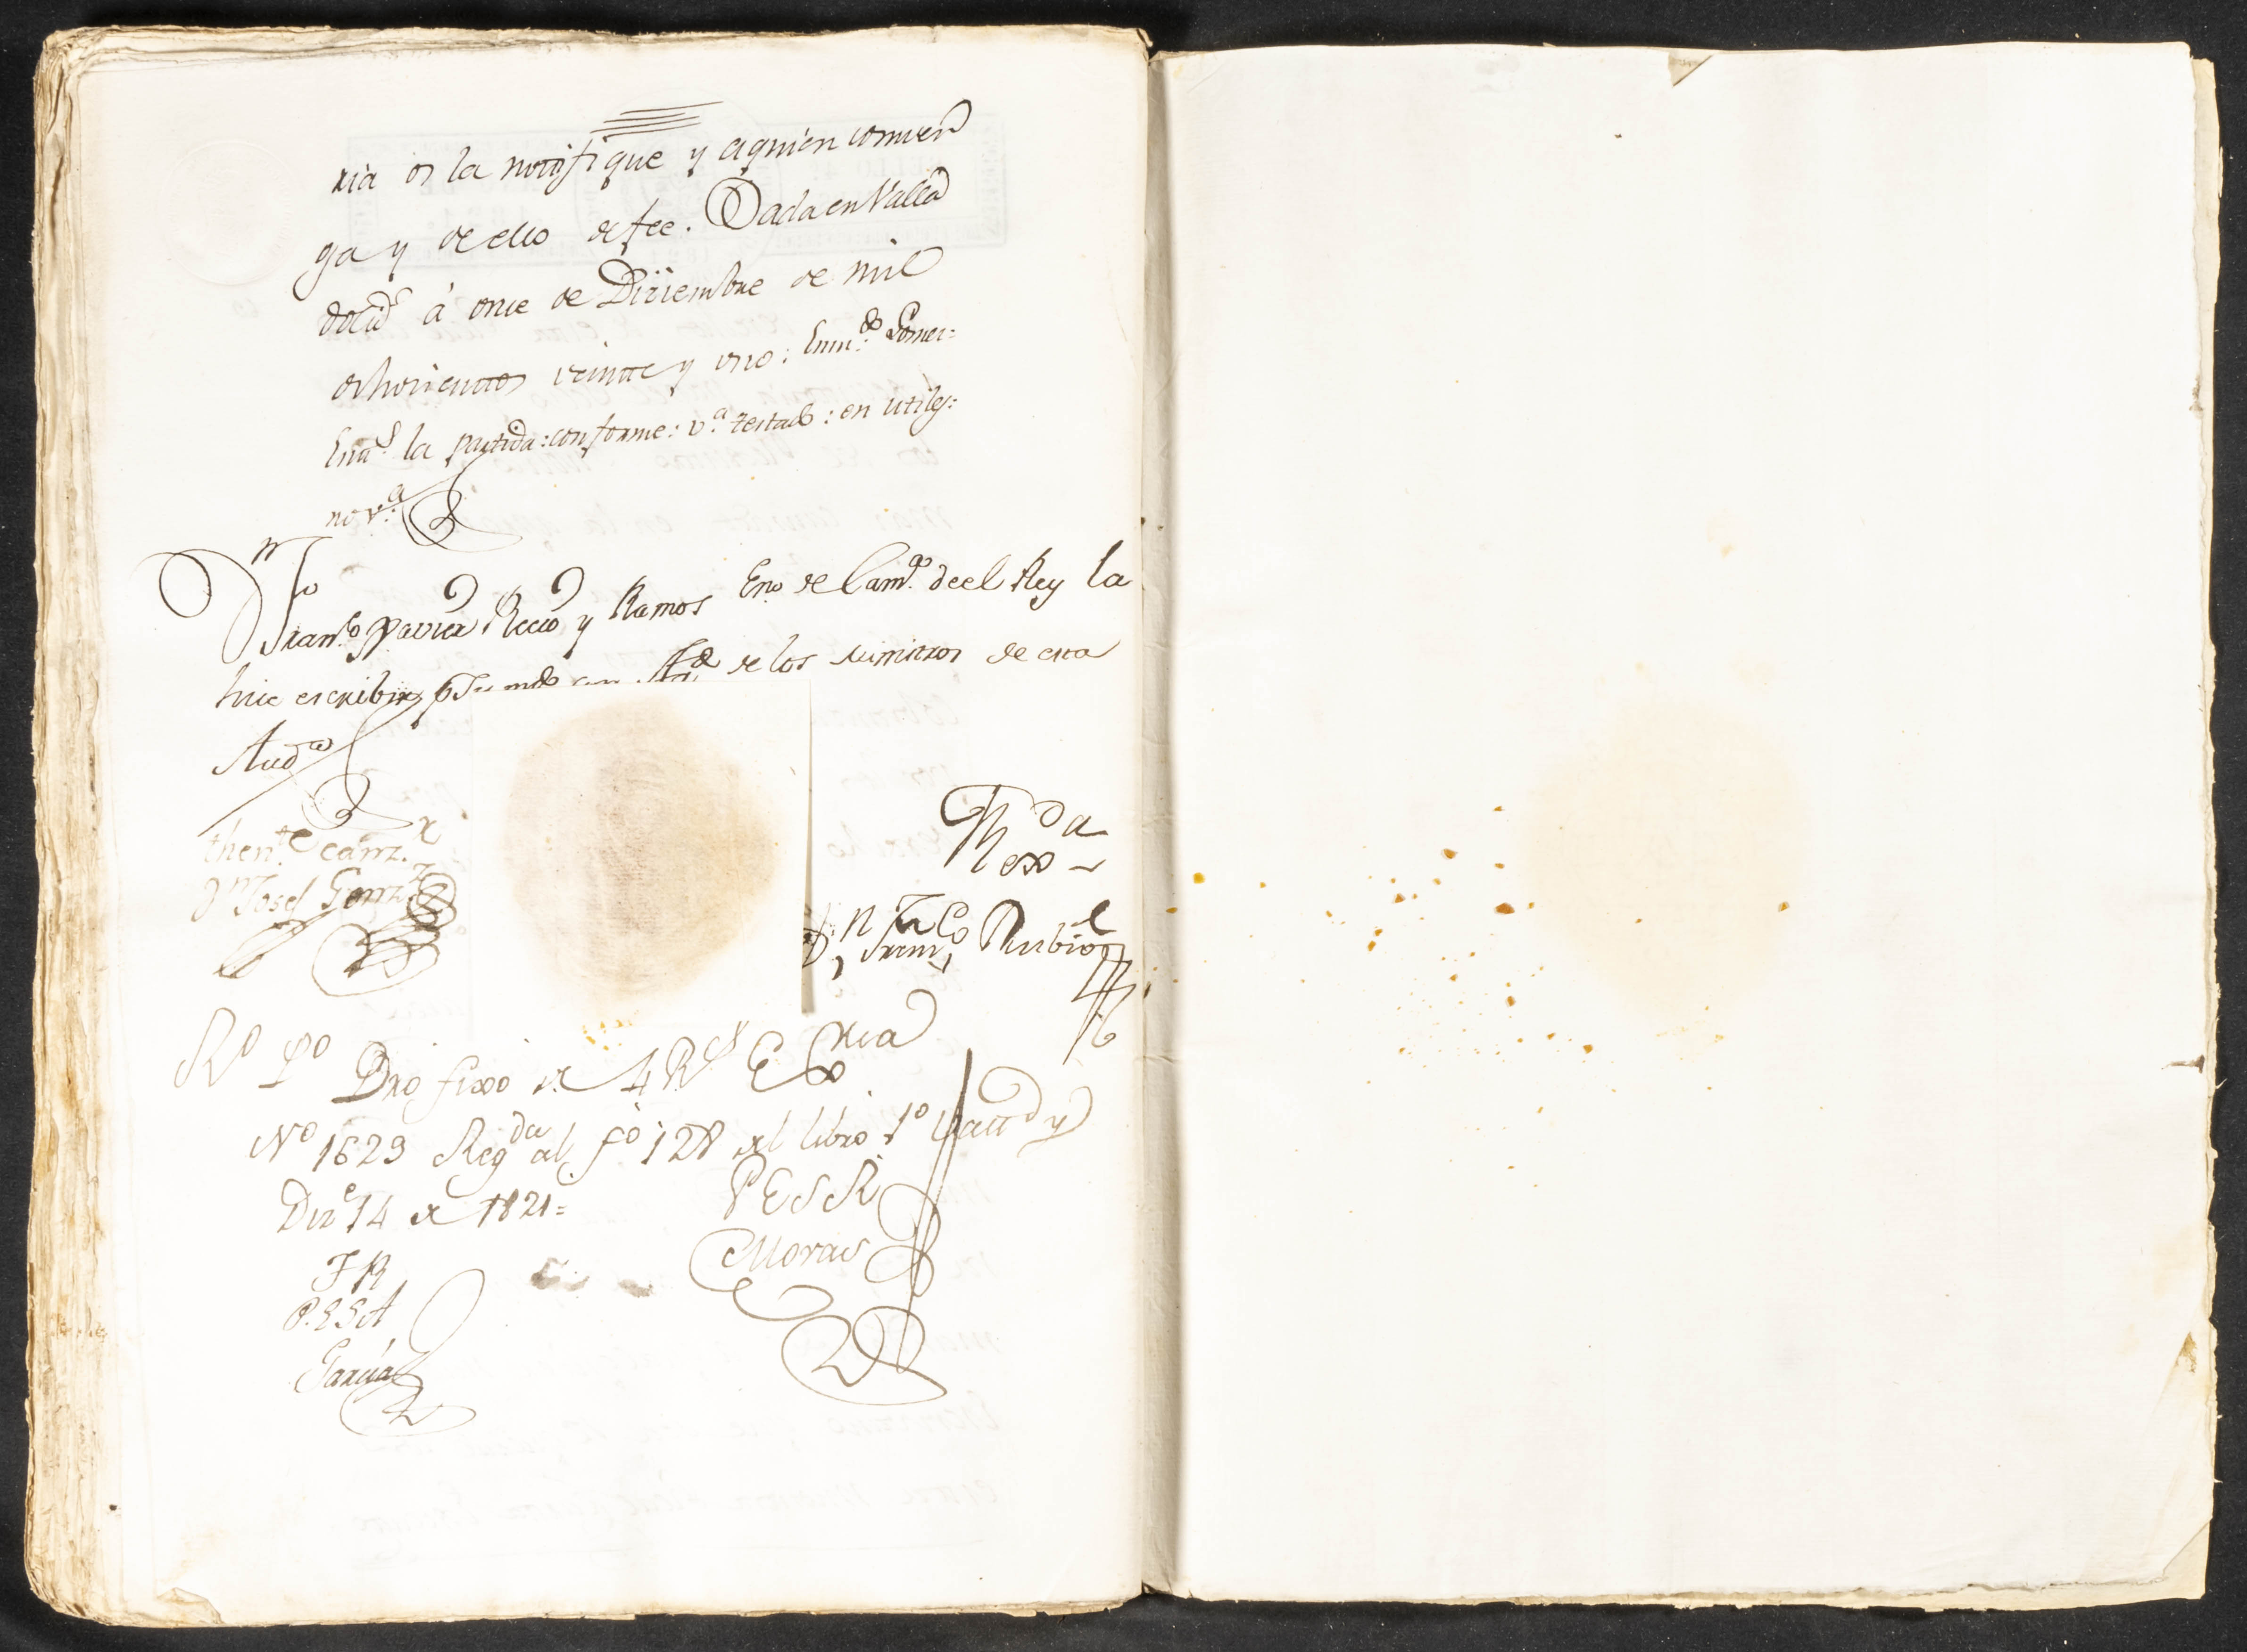 ria os la notifique y aquien conven
ga y de ello de fee. Dada en Valla
dolid á once de Diziembre de mil
ochocientos veinte y uno: Enm.do
la partida: conforme: v.a testado: en utiles:
no v.a
Dn Franco Xavier Recio y Ramos Eno de Cam.a de el Rey la
hice escribir de los ministros de esta
Auda
thente canz.r
Dn Josef Gonz.z
Rda
D.n Franco Rubio
Ro Po Dro fixo de 4 Rs
No 1629 Regda al fo 128 del libro 1o
Dize 14 de 1821=
PESR
Moras
FR
P.ESA
García